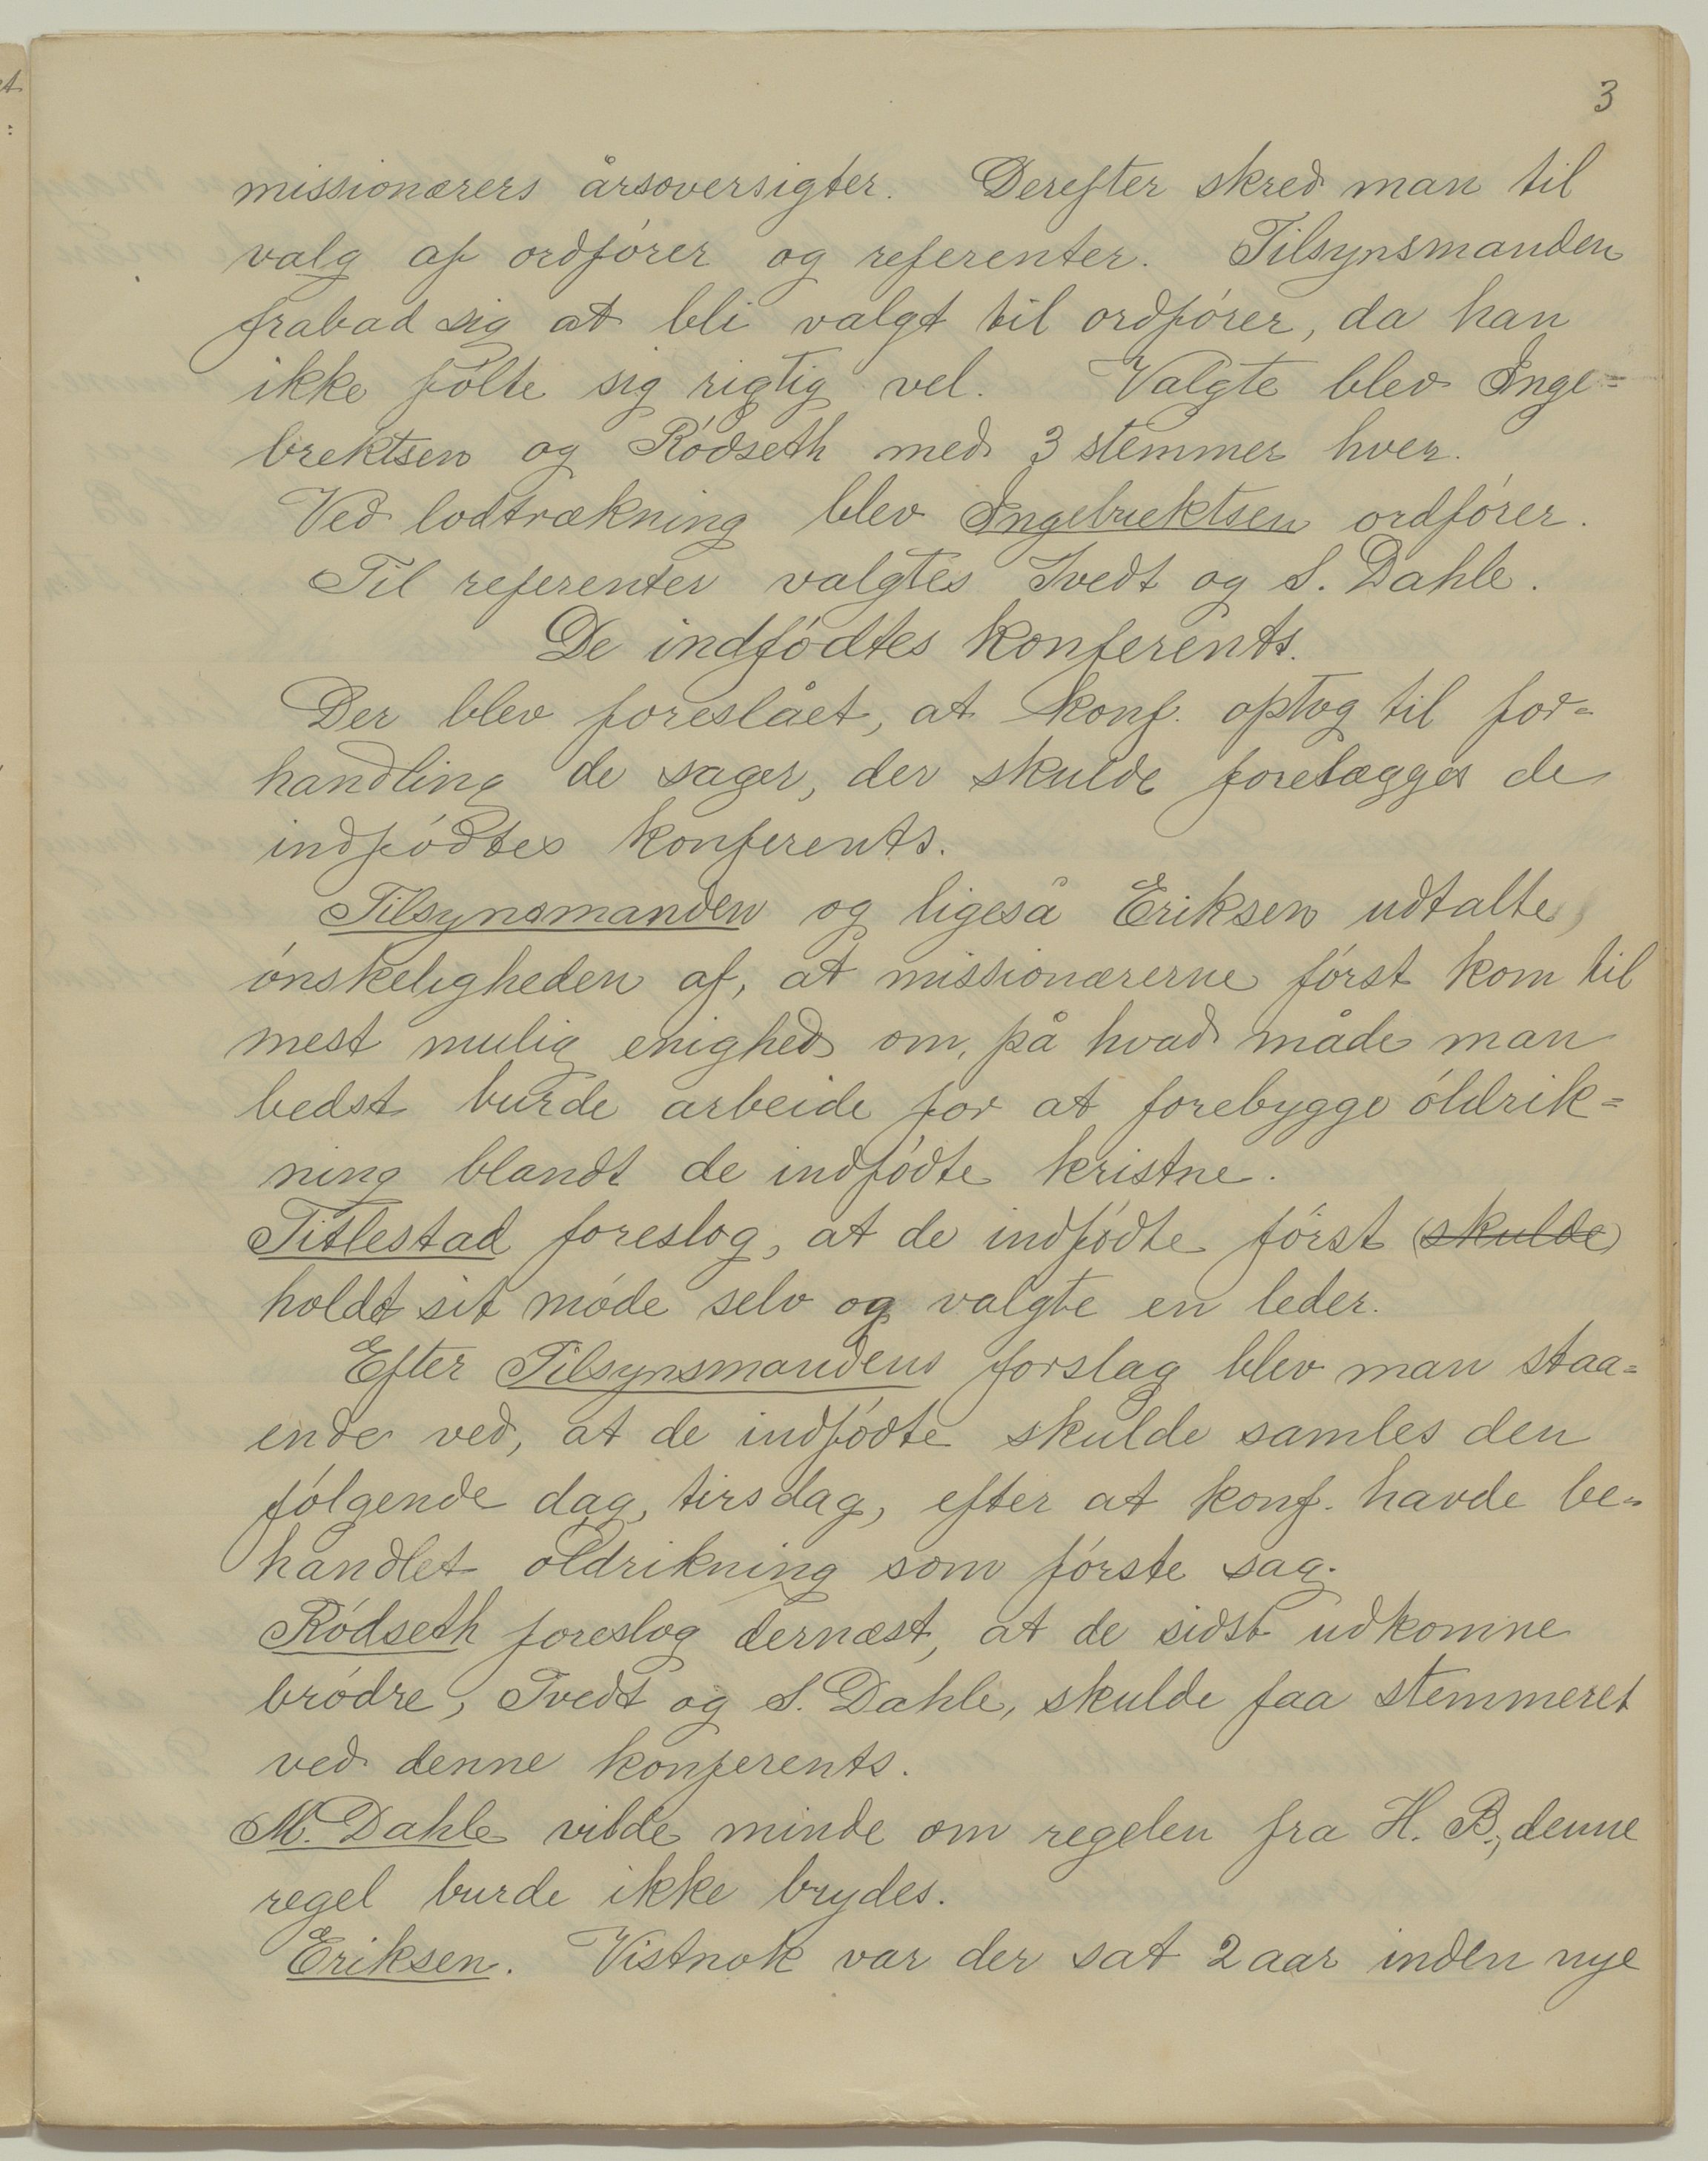 3
missionærers årsoversigter. Derefter skred man til
valg af ordfórer og referenter. Tilsynsmanden
frabad sig at bli valgt til ordfórer, da han
ikke fólte sig rigtig vel. Valgte blev Inge=
brektsen og Ródseth med 3 stemmer hver.
Ved lodtrækning blev Ingebrektsen ordfórer.
Til referenter valgtes Tvedt og S. Dahle.
De indfódtes konferents.
Der blev foreslået, at konf. optog til for=
handling de sager, der skulde forelægges de
indfódtes konferents.
Tilsynsmanden og ligeså Eriksen udtalte
ónskeligheden af, at missionærerne fórst kom til
mest mulig enighed om, på hvad måde man
bedst burde arbeide for at forebygge óldrik=
ning blandt de indfódte kristne.
Titlestad foreslog, at de indfódte fórst (skulde)
holdt sit móde selv og valgte en leder.
Efter Tilsynsmandens forslag blev man staa=
ende ved, at de indfódte skulde samles den
fólgende dag, tirsdag, efter at konf. havde be=
handlet óldrikning som fórste sag.
Ródseth foreslog dernæst, at de sidst udkomne
bródre, Tvedt og S. Dahle, skulde faa stemmeret
ved denne konferents.
M. Dahle vilde minde om regelen fra H. B., denne
regel burde ikke brydes.
Eriksen. Vistnok var der sat 2 aar inden nye